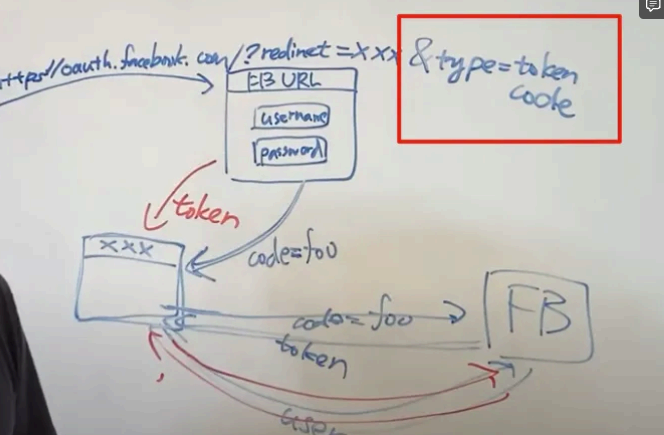 https://oauth.facebook.com/?redirect=xxx &type=token
code
FB URL
username
password
token
code=foo
xxx
code=foo
FB
token
user